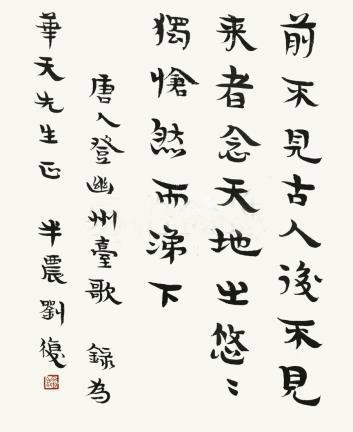 前不見古人後不見
来者念天地㞢悠〻
獨愴然而涕下
唐人登幽州臺歌 錄為
華天先生正 半農劉復